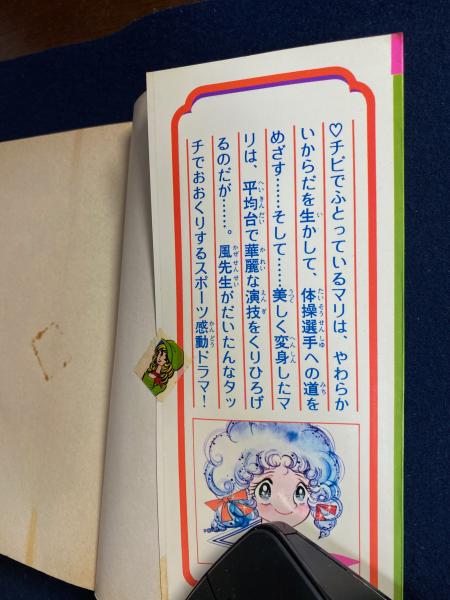 ♡チビでふとっているマリは、やわらか
いからだを生かして、体操選手への道を
めざす……そして……美しく変身したマ
リは、平均台で華麗な演技をくりひろげ
るのだが……。風先生がだいたんなタッ
チでおおくりするスポーツ感動ドラマ!